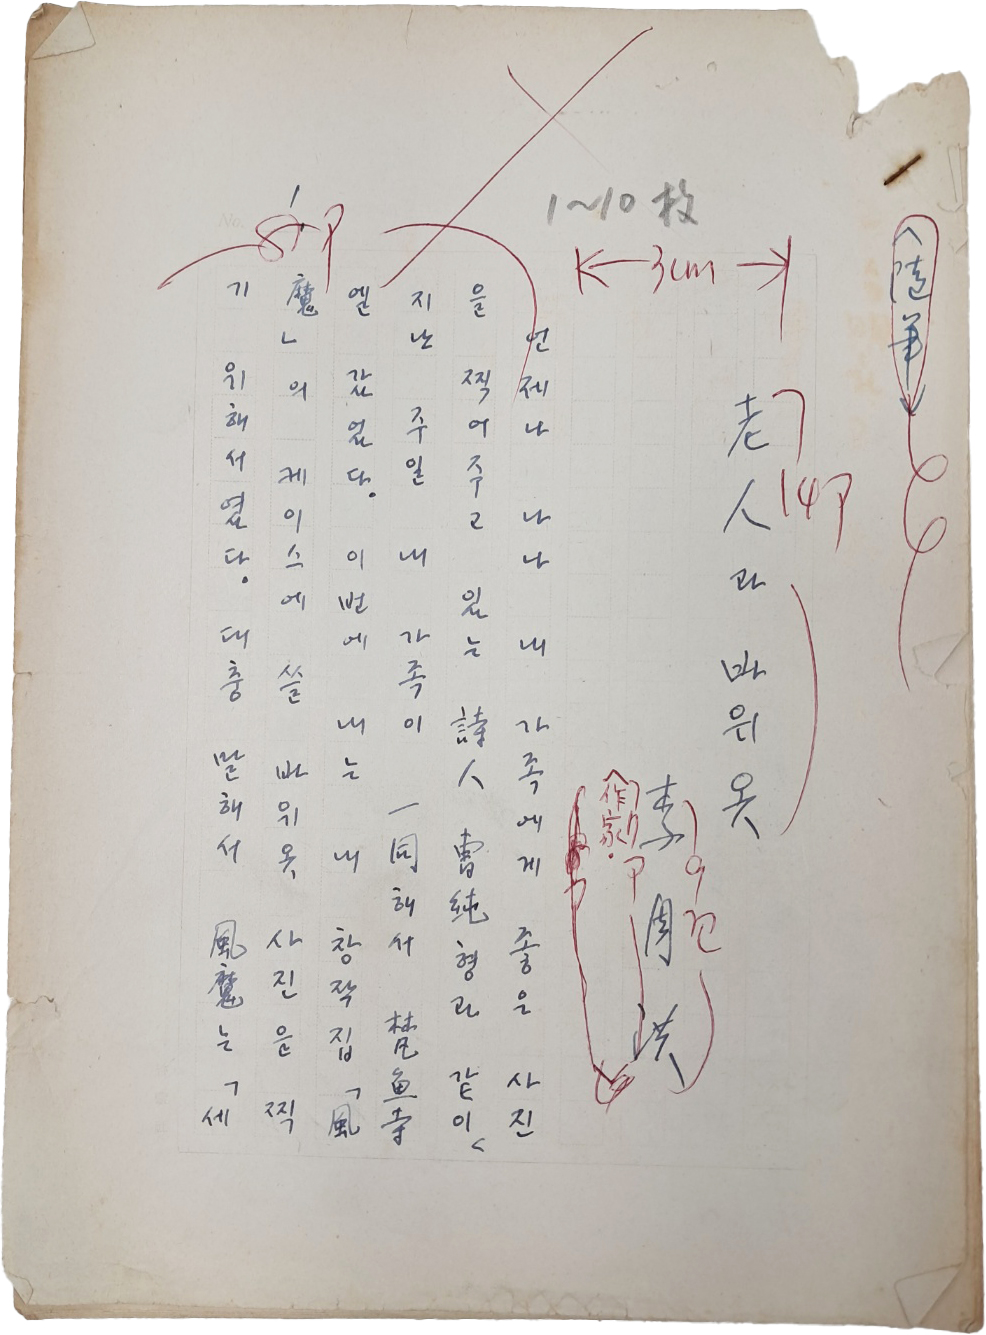 <隨筆>
老人과 바위옷
李周洪
<作家·
1~10 枚
3cm
14P
8P
언제나 나나 내 가족에게 좋은 사진
을 찍어주고 있는 詩人 曺純형과 같이<
지난 주일 내 가족이 一同해서 梵魚寺
엘 갔었다. 이번에 내는 내 창작집 「風
魔」의 케이스에 쓸 바위옷 사진을 찍
기 위해서였다. 대충 말해서 風魔는 「세